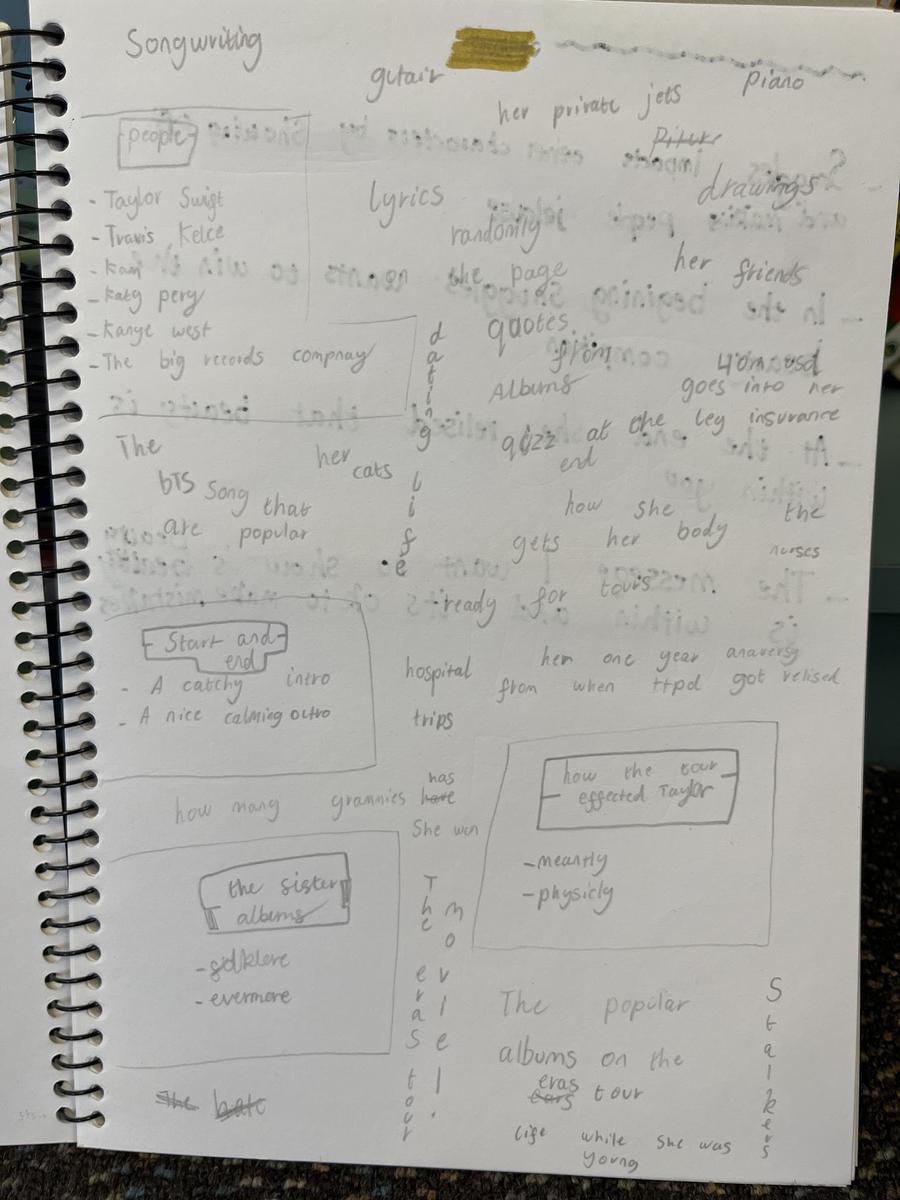 Songwriting
gutair
piano
her private jets
people
- Taylor Swigt
- Travis Kelce
- Kam
- Katy pery
- Kanye west
- The big records compnay
lyrics
drawings
randomly
the page
her friends
quotes
from
Albums
40mousd
goes into her
leg insurance
quzz at the
end
dating life
The
bts song that
are popular
her
cats
how she
gets her body
ready for tours
the
nurses
Start and
end
- A catchy intro
- A nice calming outro
hospital
trips
her one year anaversy
from when ttpd got relised
how many grammies have
has
She won
how the tour
effected Taylor
- meantly
- physicly
the sister
albums
- folklore
- evermore
The eras tour
movie 1.
The popular
albums on the
ears
eras tour
Stalkers
The hate
life while she was
young